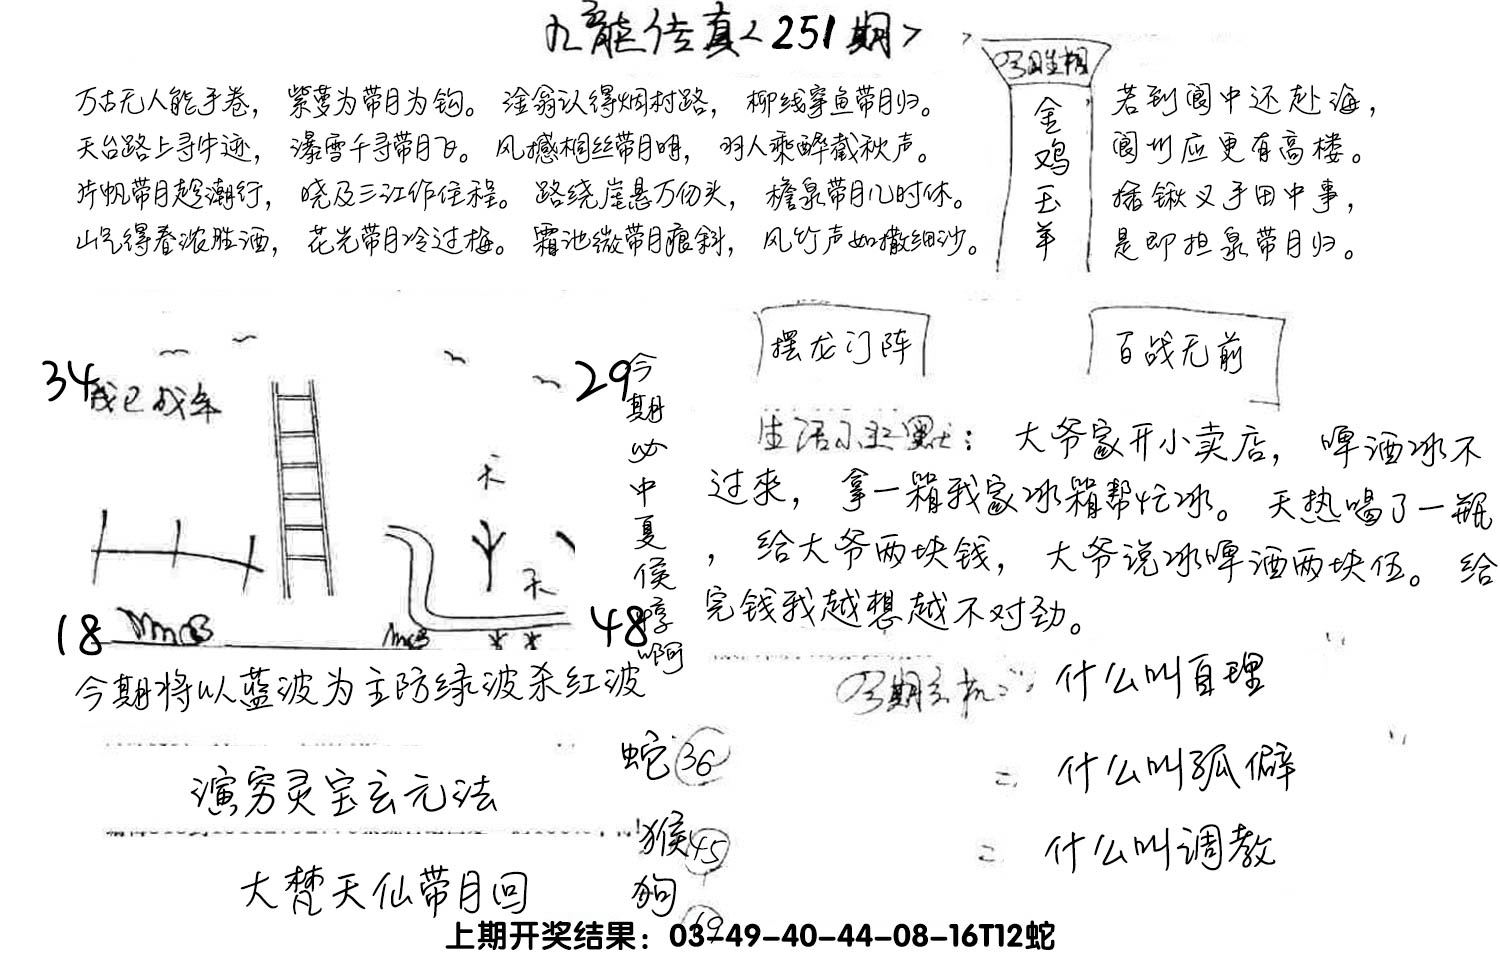 九龙传真<251期>
万古无人能手卷，紫萝为带月为钩。淦翁认得烟村路，柳线穿鱼带月归。
天台路上寻牛迹，瀑雪千寻带月飞。风撼桐丝带月明，羽人乘醉截秋声。
片帆带月趁潮行，晓及三江作住程。路绕崖悬万仞头，檐泉带月几时休。
山气得春浓胜酒，花光带月冷过梅。霜池微带月痕斜，风竹声如撒细沙。
今期生相
金鸡玉羊
若到阆中还赴海，
阆州应更有高楼。
插锹义手田中事，
是即担泉带月归。
34
29
18
48
今期必中夏侯惇啊
今期将以蓝波为主防绿波杀红波
摆龙门阵
百战无前
生活小幽默：大爷家开小卖店，啤酒冰不
过来，拿一箱我家冰箱帮忙冰。天热喝了一瓶
，给大爷两块钱，大爷说冰啤酒两块伍。给
完钱我越想越不对劲。
今期玄机：什么叫自理
二 什么叫孤僻
二 什么叫调教
演穷灵宝玄元法
大梵天仙带月回
蛇 36
猴 45
狗 19
上期开奖结果：03-49-40-44-08-16T12蛇